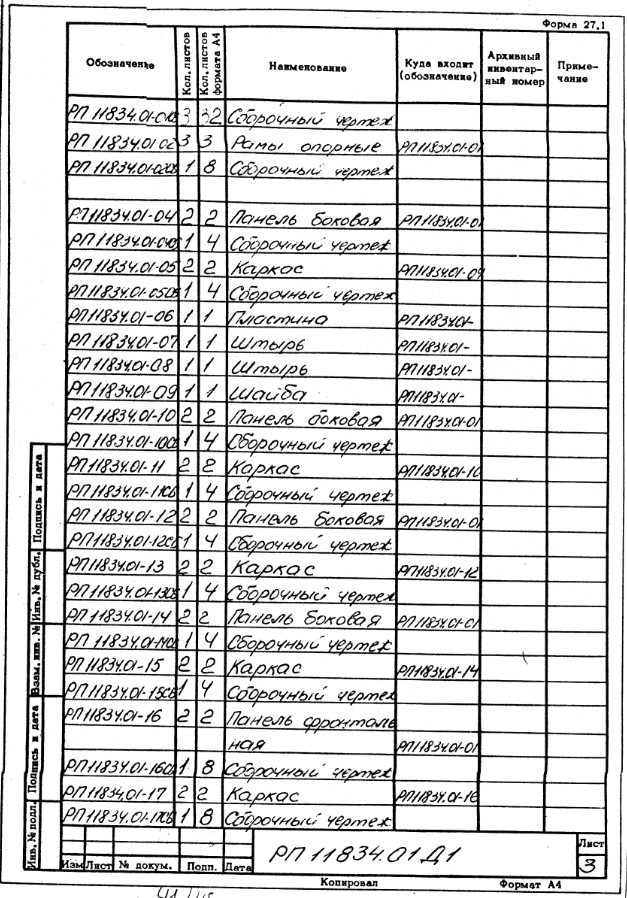 Форма 27.1
Обозначение Кол. листов Кол. листов формата А4 Наименование Куда входит (обозначение) Архивный инвентарный номер Приме-чание
РП 11834.01-01СБ 3 32 Сборочный чертеж
РП 11834.01 02 3 3 Рамы опорные РП11834.01-01
РП 11834.01-02СБ 1 8 Сборочный чертеж
РП11834.01-04 2 2 Панель боковая РП11834.01-01
РП 11834.01-04СБ 1 4 Сборочный чертеж
РП 11834.01-05 2 2 Каркас РП11834.01-04
РП 11834.01-05СБ 1 4 Сборочный чертеж
РП 11834.01-06 1 1 Пластина РП11834.01-
РП 11834.01-07 1 1 Штырь РП11834.01-
РП 11834.01-08 1 1 Штырь РП11834.01-
РП 11834.01-09 1 1 Шайба РП11834.01-
РП 11834.01-10 2 2 Панель боковая РП11834.01-01
РП 11834.01-10СБ 1 4 Сборочный чертеж
РП 11834.01-11 2 2 Каркас РП11834.01-10
РП 11834.01-11СБ 1 4 Сборочный чертеж
РП 11834.01-12 2 2 Панель боковая РП11834.01-01
РП 11834.01-12СБ 1 4 Сборочный чертеж
РП 11834.01-13 2 2 Каркас РП11834.01-12
РП 11834.01-13СБ 1 4 Сборочный чертеж
РП 11834.01-14 2 2 Панель боковая РП11834.01-01
РП 11834.01-14СБ 1 4 Сборочный чертеж
РП 11834.01-15 2 2 Каркас РП11834.01-14
РП 11834.01-15СБ 1 4 Сборочный чертеж
РП 11834.01-16 2 2 Панель фронталь
ная РП11834.01-01
РП 11834.01-16СБ 1 8 Сборочный чертеж
РП 11834.01-17 2 2 Каркас РП11834.01-16
РП 11834.01-17СБ 1 8 Сборочный чертеж
Инв. № подл. Подпись и дата Взам. инв. № Инв. № дубл. Подпись и дата
РП 11834.01 Д1
Лист
3
Изм Лист № докум. Подп. Дата
Копировал Формат А4